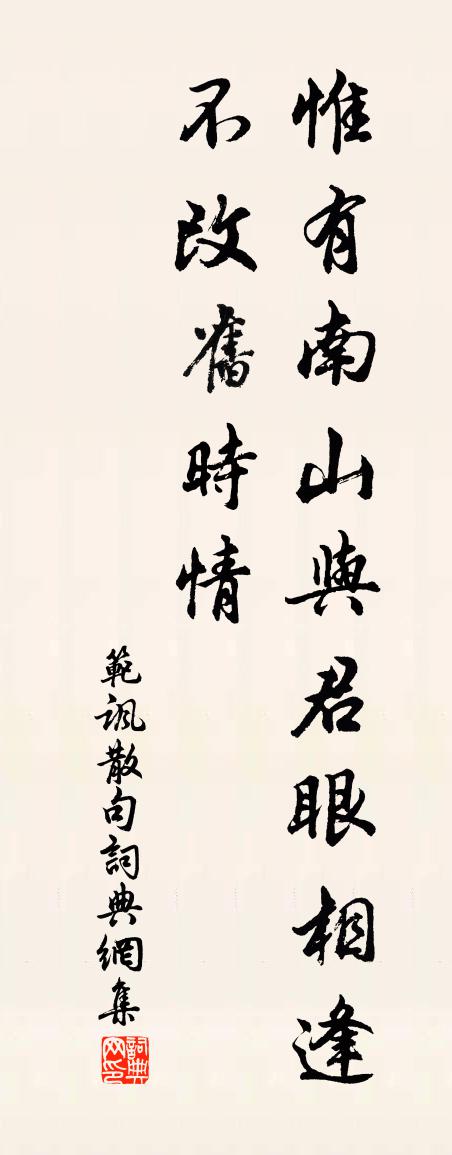 惟有南山與君眼相逢
不改舊時情
範諷散句詞典網集
詞典网印